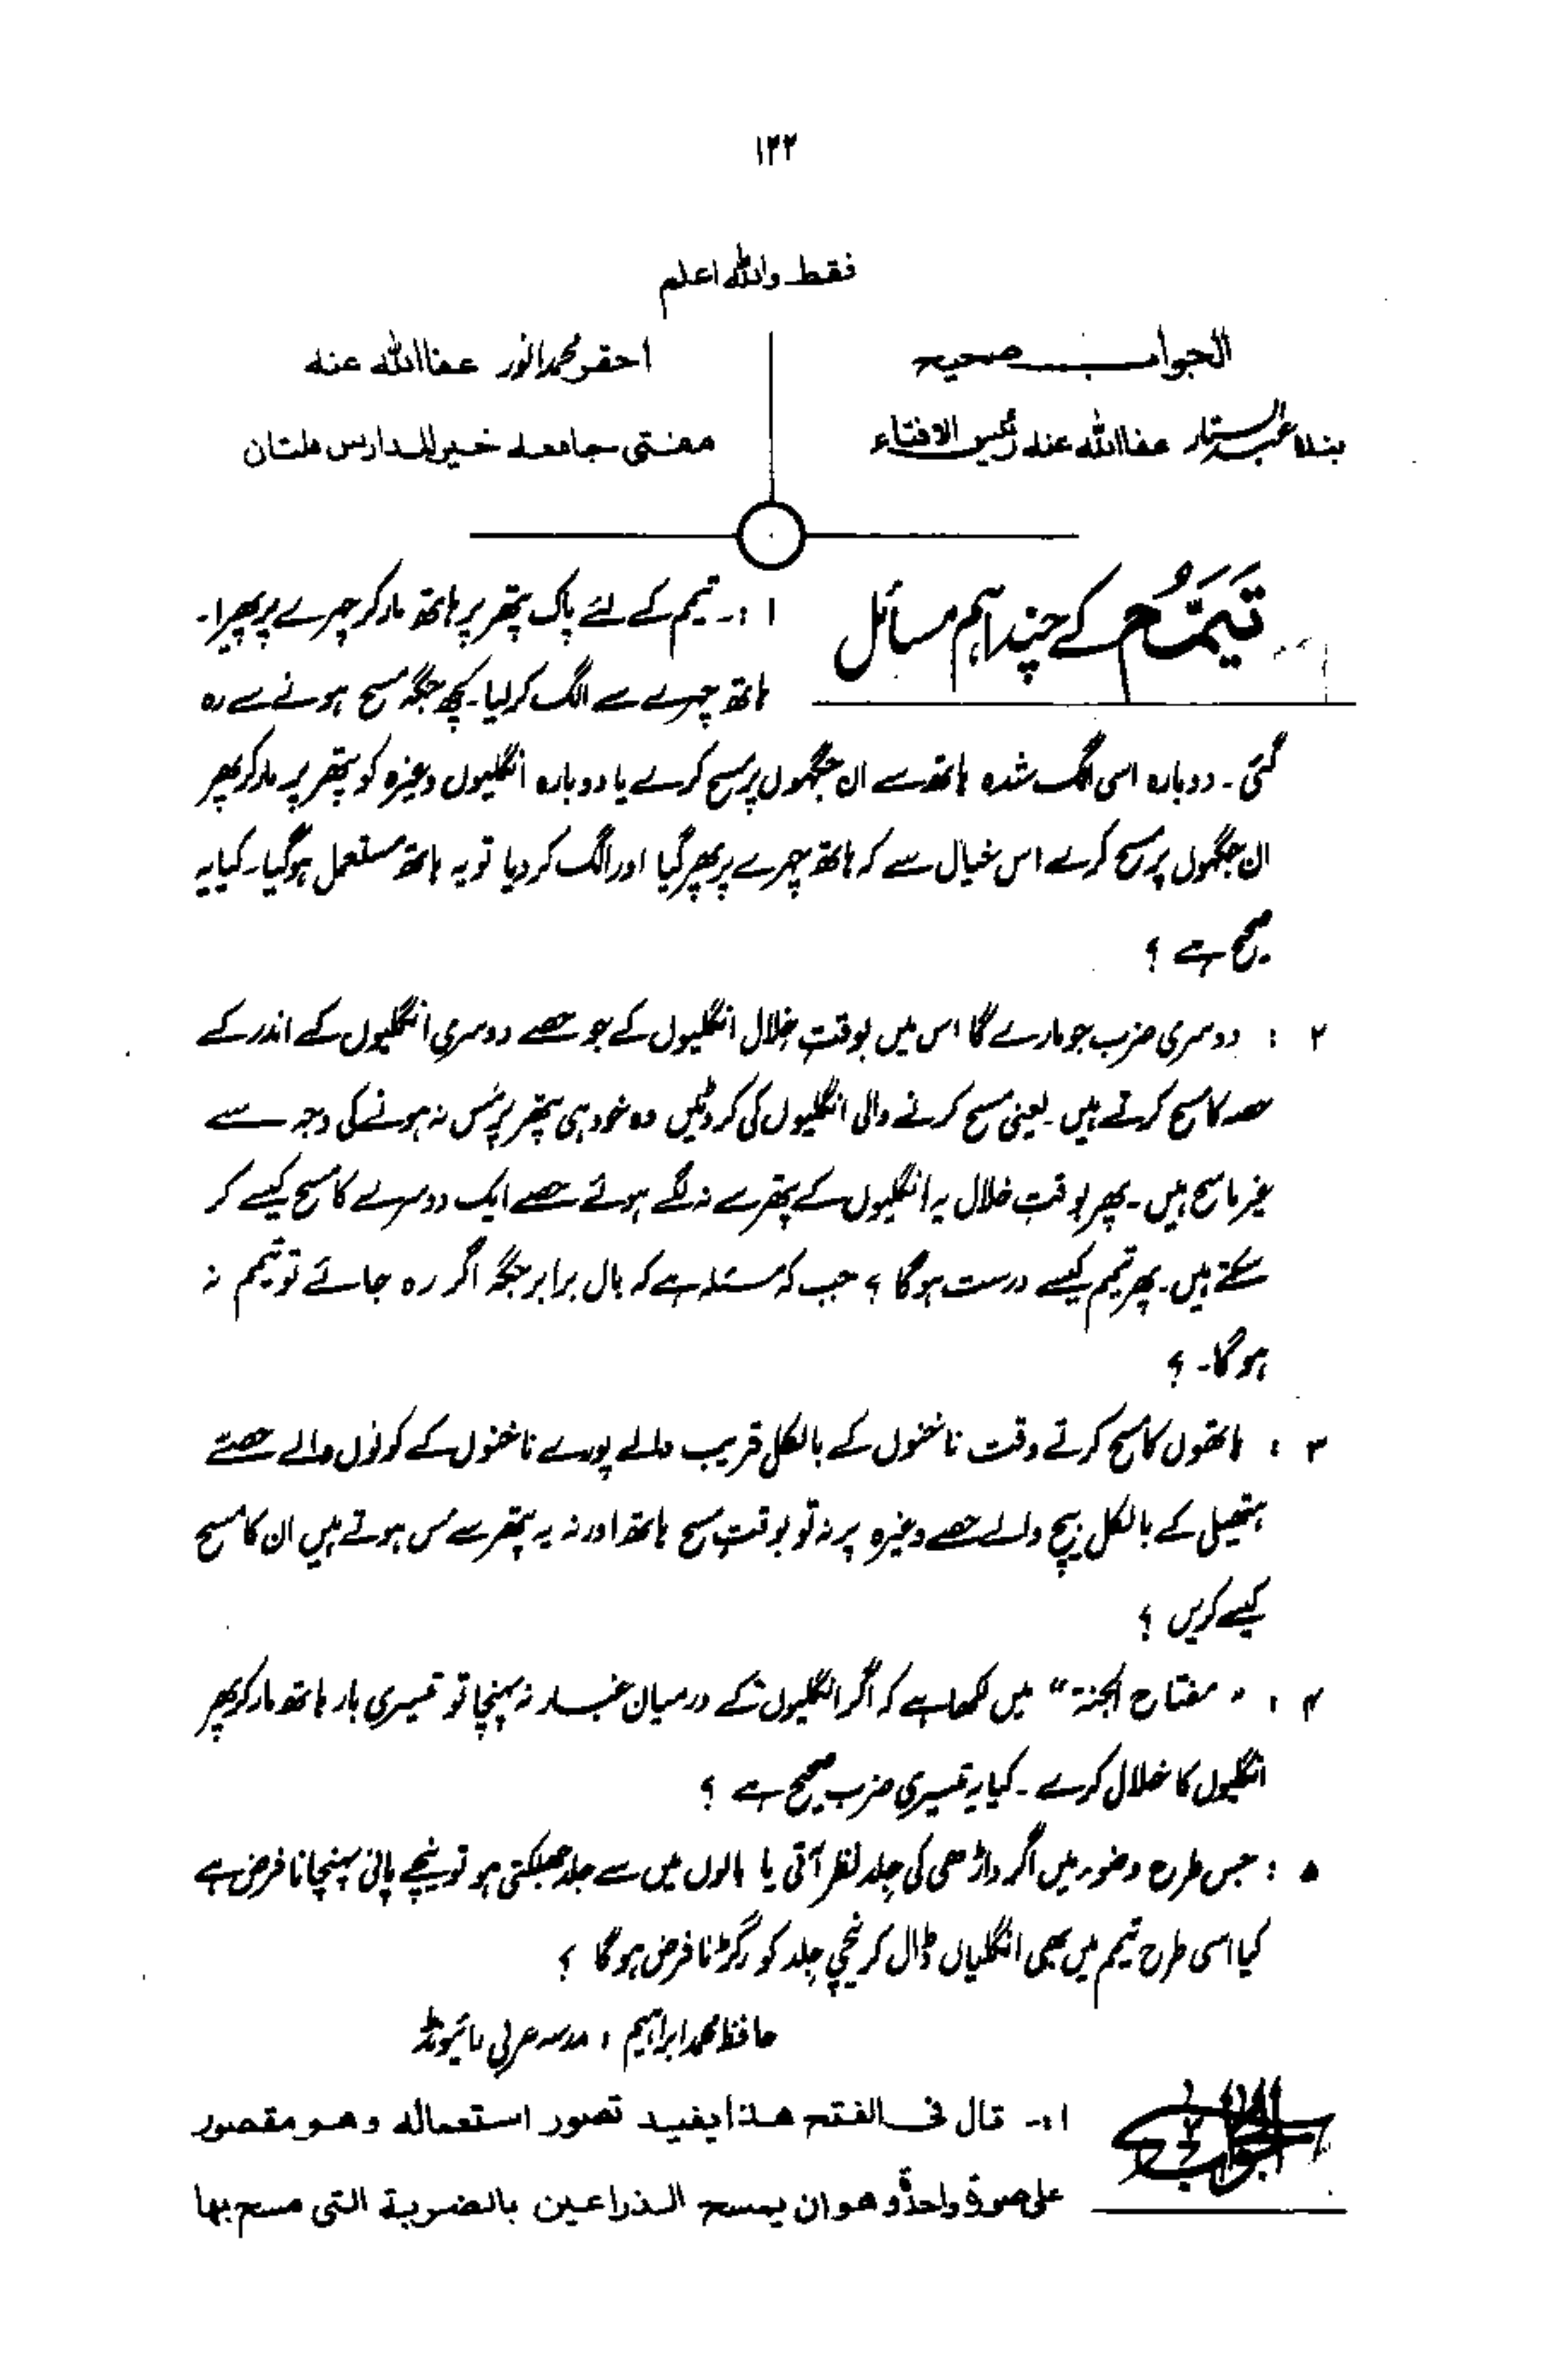 ۱۳۲
فقط واللہ اعلم
الجواب صحیح
بندہ عبدالستار عفااللہ عنہ رئیس الافتاء
احقر محمد انور عفااللہ عنہ
مفتی جامعہ خیرالمدارس ملتان
تَیَمُّم کے چند اہم مسائل
۱:۔ تیمم کے لئے پاک پتھر پر ہاتھ مار کر چہرے پر پھیرا۔
ہاتھ چہرے سے الگ کر لیا۔ کچھ جگہ مسح ہونے سے رہ
گئی۔ دوبارہ اسی الگ شدہ ہاتھ سے ان جگہوں پر مسح کرے یا دوبارہ انگلیوں وغیرہ کو پتھر پر مار کر پھر
ان جگہوں پر مسح کرے اس خیال سے کہ ہاتھ چہرے پر پھر گیا اور الگ کر دیا تو یہ ہاتھ مستعمل ہو گیا۔ کیا یہ
صحیح ہے ؟
۲ : دوسری ضرب جو مارے گا اس میں بوقتِ خلال انگلیوں کے جو حصے دوسری انگلیوں کے اندر کے
حصہ کا مسح کرتے ہیں۔ یعنی مسح کرنے والی انگلیوں کی کروٹیں وہ خود ہی پتھر پر مَس نہ ہونے کی وجہ سے
غیر ماسح ہیں۔ پھر بوقتِ خلال یہ انگلیوں کے پتھر سے نہ لگے ہوئے حصے ایک دوسرے کا مسح کیسے کر
سکتے ہیں۔ پھر تیمم کیسے درست ہوگا ؟ جب کہ مسئلہ ہے کہ بال برابر جگہ اگر رہ جائے تو تیمم نہ
ہوگا۔ ؟
۳ : ہاتھوں کا مسح کرتے وقت ناخنوں کے بالکل قریب والے پورے ناخنوں کے کونوں والے حصے
ہتھیلی کے بالکل بیچ والے حصے وغیرہ پر نہ تو بوقتِ مسح ہاتھ اور نہ یہ پتھر سے مس ہوتے ہیں ان کا مسح
کیسے کریں ؟
۴ : " مفتاح الجنۃ " میں لکھا ہے کہ اگر انگلیوں کے درمیان غبار نہ پہنچا تو تیسری بار ہاتھ مار کر پھر
انگلیوں کا خلال کرے۔ کیا یہ تیسری ضرب صحیح ہے ؟
۵ : جس طرح وضو میں اگر داڑھی کی جلد نظر آتی یا بالوں میں سے جلد جھلکتی ہو تو نیچے پانی پہنچانا فرض ہے
کیا اسی طرح تیمم میں بھی انگلیاں ڈال کر نچلی جلد کو رگڑنا فرض ہوگا ؟
حافظ محمد ابراہیم ، مدرسہ عربی رائیونڈ
الجواب
۱:۔ قال فی الفتح ھذا یفید تصور استعمالہ وھو مقصور
علی صورۃ واحدۃ وھو ان یمسح الذراعین بالضربۃ التی مسح بہا